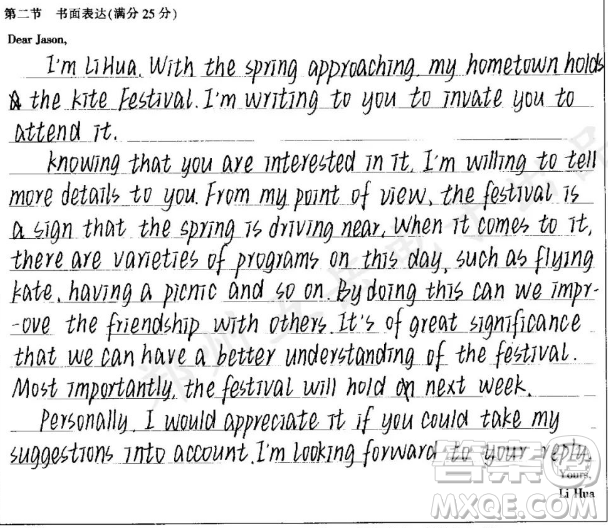 第二节 书面表达(满分 25 分)
Dear Jason,
I'm LiHua. With the spring approaching, my hometown holds
the kite Festival. I'm writing to you to invate you to
attend it.
Knowing that you are interested in it, I'm willing to tell
more details to you. From my point of view, the festival is
a sign that the spring is driving near, When it comes to it,
there are varieties of programs on this day, such as flying
kate, having a picnic and so on. By doing this can we impr-
-ove the friendship with others. It's of great significance
that we can have a better understanding of the festival.
Most importantly, the festival will hold on next week.
Personally, I would appreciate it if you could take my
suggestions into account. I'm looking forward to your reply.
Yours,
Li Hua
答案圈
MXQE.COM